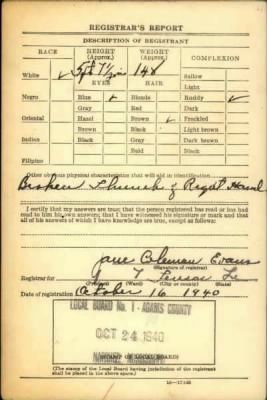 REGISTRAR'S REPORT
DESCRIPTION OF REGISTRANT
RACE HEIGHT (Approx.) WEIGHT (Approx.) COMPLEXION
White ✓ 5 ft 7½ ins 148 Sallow
EYES HAIR Light
Negro Blue ✓ Blonde Ruddy ✓
Gray Red Dark
Oriental Hazel Brown ✓ Freckled
Brown Black Light brown
Indian Black Gray Dark brown
Bald Black
Filipino
Other obvious physical characteristics that will aid in identification
Broken Thumb of Right Hand
I certify that my answers are true; that the person registered has read or has had
read to him his own answers; that I have witnessed his signature or mark and that
all of his answers of which I have knowledge are true, except as follows:
Jane Coleman Evans
(Signature of registrar)
Registrar for
(Precinct) (Ward) (City or county) (State)
Date of registration October 16 1940
LOCAL BOARD No. 1 - ADAMS COUNTY
OCT 24 1940
NATCHEZ, MISSISSIPPI
(STAMP OF LOCAL BOARD)
(The stamp of the Local Board having jurisdiction of the registrant
shall be placed in the above space.)